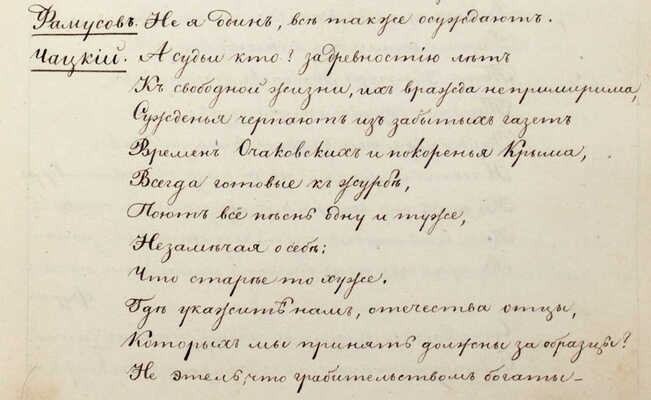 Фамусовъ. Не я одинъ, всѣ также осуждаютъ.
Чацкій. А судьи кто? за древностію лѣтъ
Къ свободной жизни, ихъ вражда непримирима,
Сужденья черпаютъ изъ забытыхъ газетъ
Времен Очаковскихъ и покоренья Крыма,
Всегда готовые къ журбѣ,
Поютъ всё пѣснь одну и туже,
Незамѣчая о себѣ:
Что старѣе то хуже.
Гдѣ укажите намъ, отечества отцы,
Которыхъ мы принять должны за образцы?
Не этель, что грабительствомъ богаты —